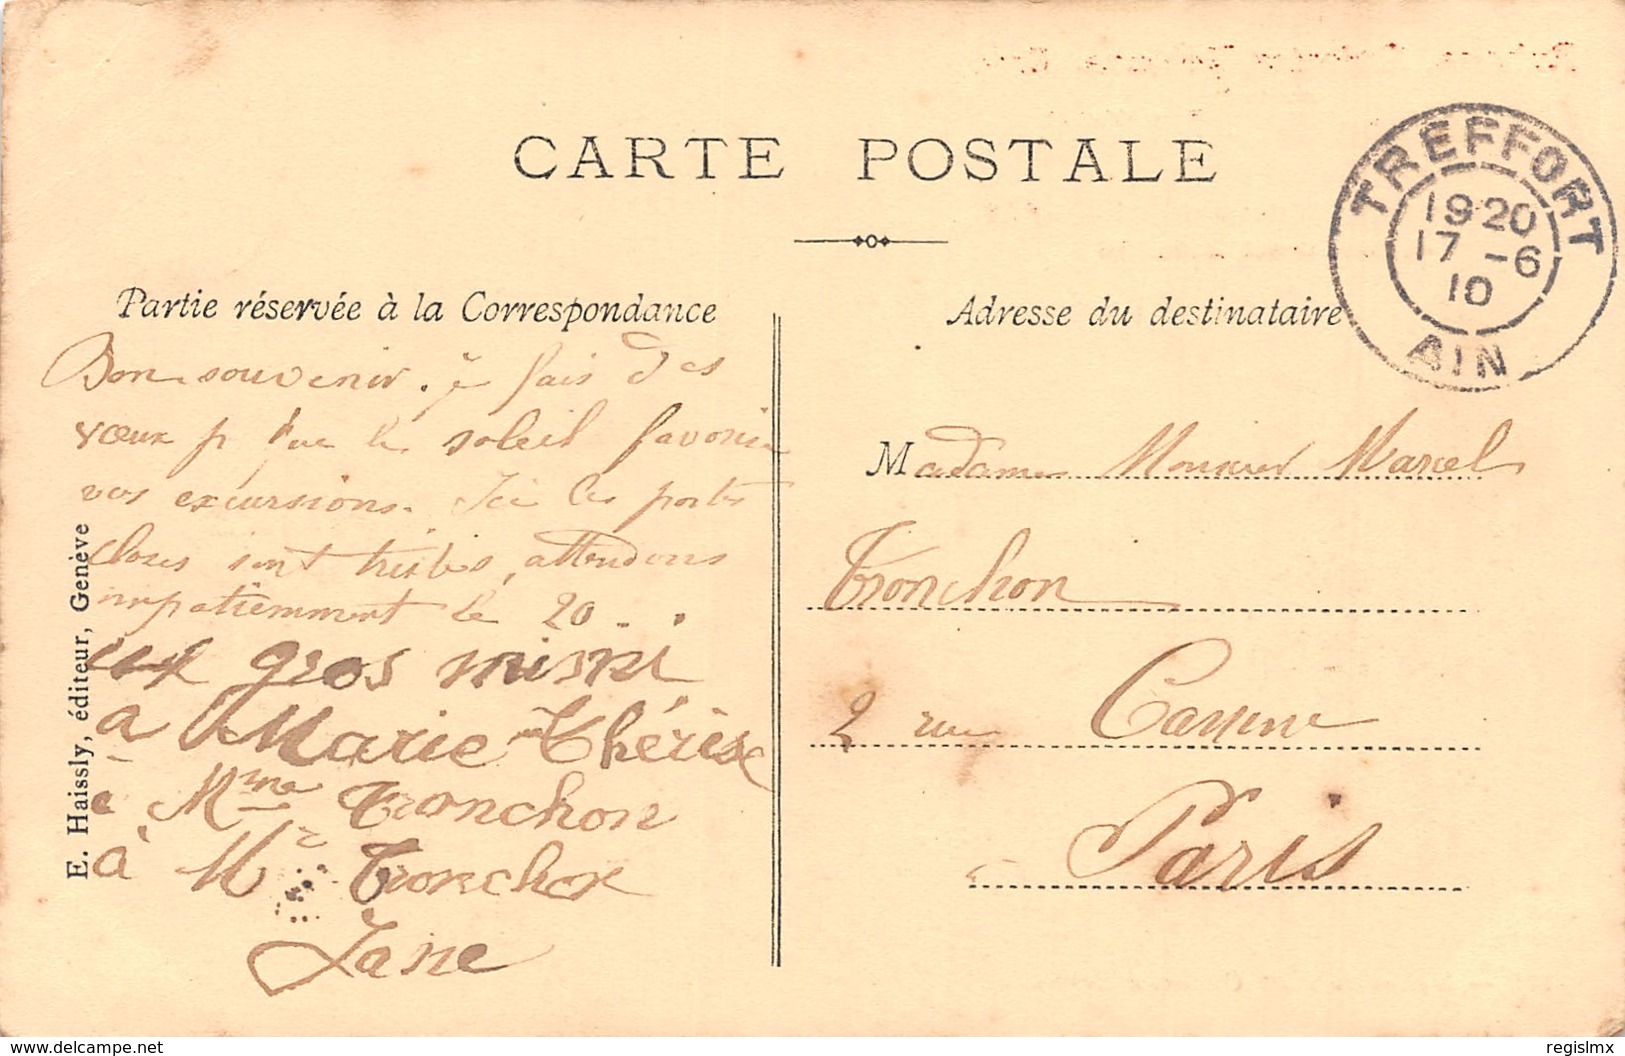 CARTE POSTALE
TREFFORT
1920
17 -6
10
AIN
Partie réservée à la Correspondance
Bon souvenir. Je fais des
vœux p que le soleil favorise
vos excursions. Ici les portes
closes sont tristes, attendons
impatiemment le 20 . .
gros mimi
a Marie Thérèse
à Mme Tronchon
à Mr Tronchon
Jane
E. Haissly, éditeur, Genève
Adresse du destinataire
Madame Monsieur Marcel
Tronchon
2 rue
Paris
delcampe.net
regislmx